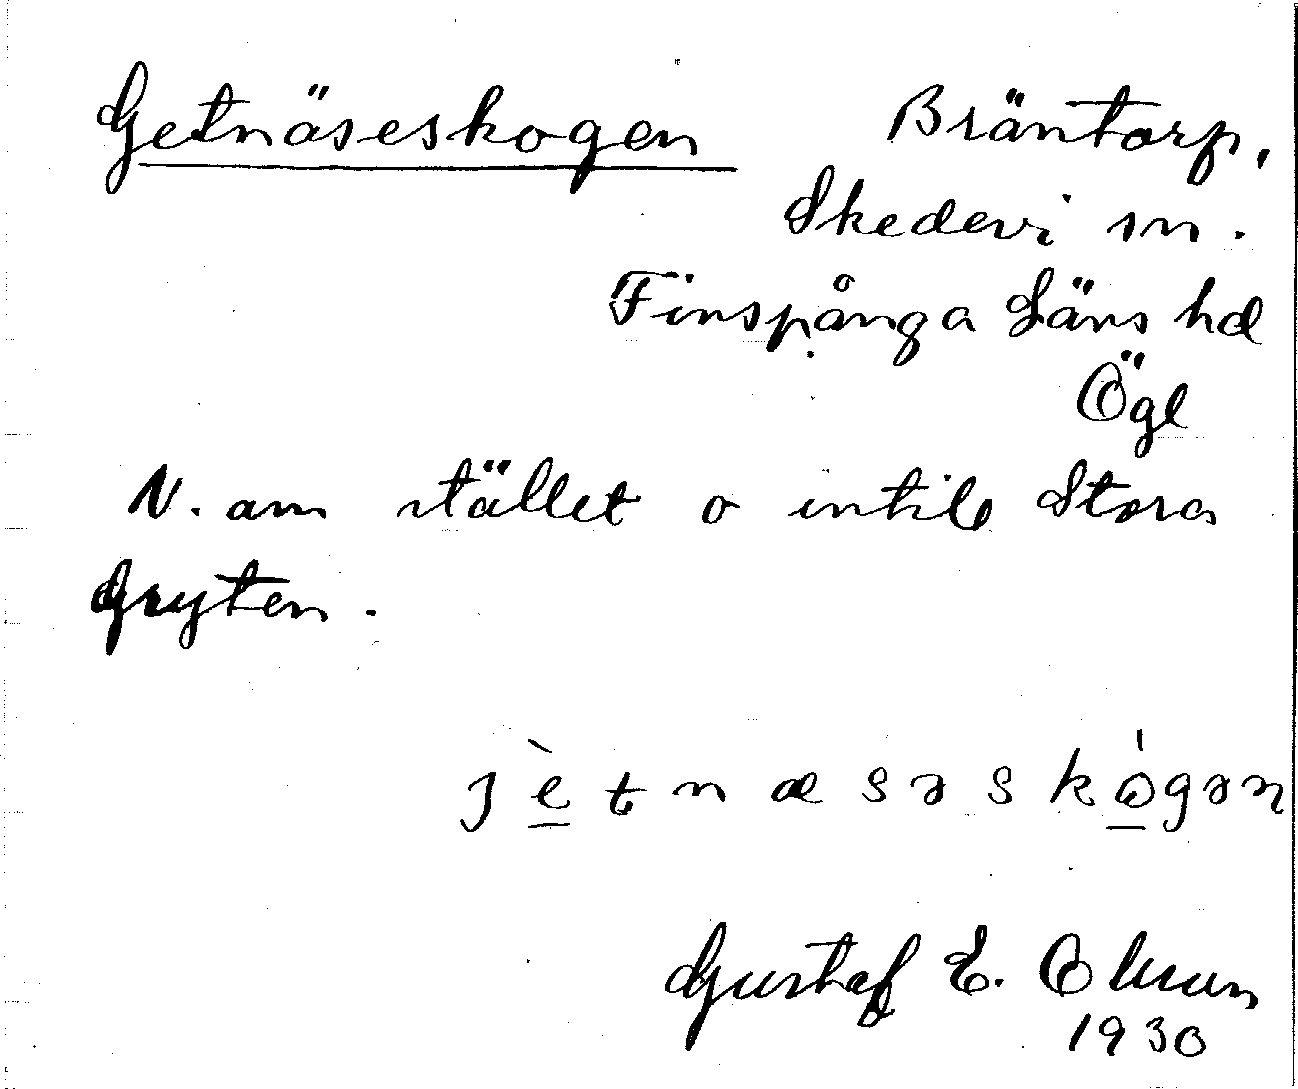 Getnäseskogen Bräntorp,
Skedevi sn.
Finspånga Läns hd
Ögl
N. om stället o intill Stora
Gryten.
jètnæsəskógən
Gustaf E. Olsson
1930